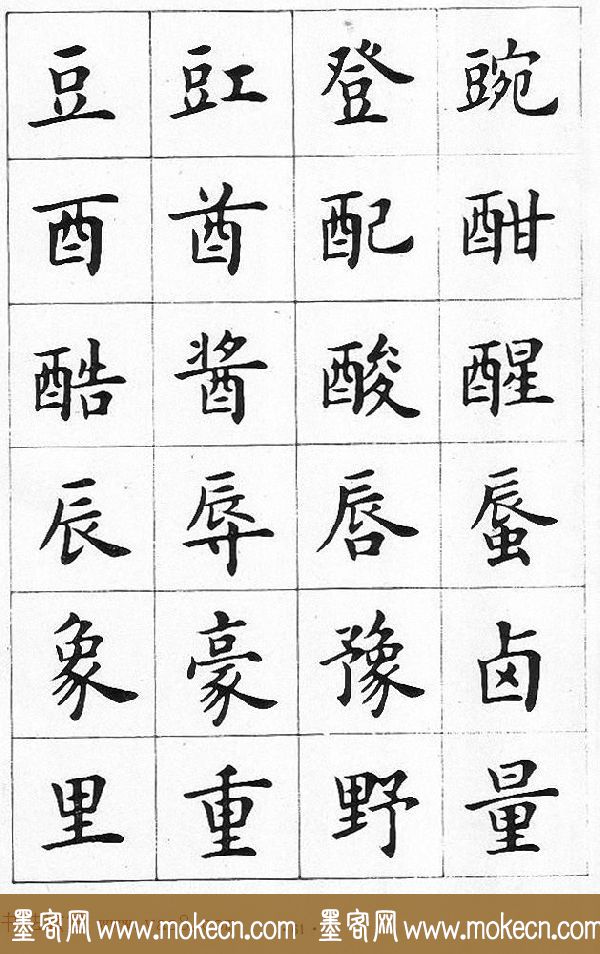 豆 豇 登 豌
酉 酋 配 酣
酷 酱 酸 醒
辰 辱 唇 蜃
象 豪 豫 卤
里 重 野 量
墨客网 www.mokecn.com 墨客网 www.mokecn.com